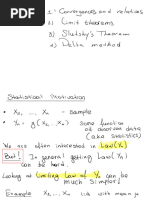 1) Convergences and relations
2) Limit theorems
3) Slutsky's Theorem
4) Delta method
Statistical Motivation
• X₁, ..., Xₙ - sample
• Yₙ = g(X₁, ..., Xₙ) some function
of observed data
(aka statistics)
We are often interested in Law(Yₙ)
But! In general getting Law(Yₙ)
can be hard!
Looking at Limiting Law of Yₙ can be
much simpler!
Example X₁, ..., Xₙ iid, with mean μ